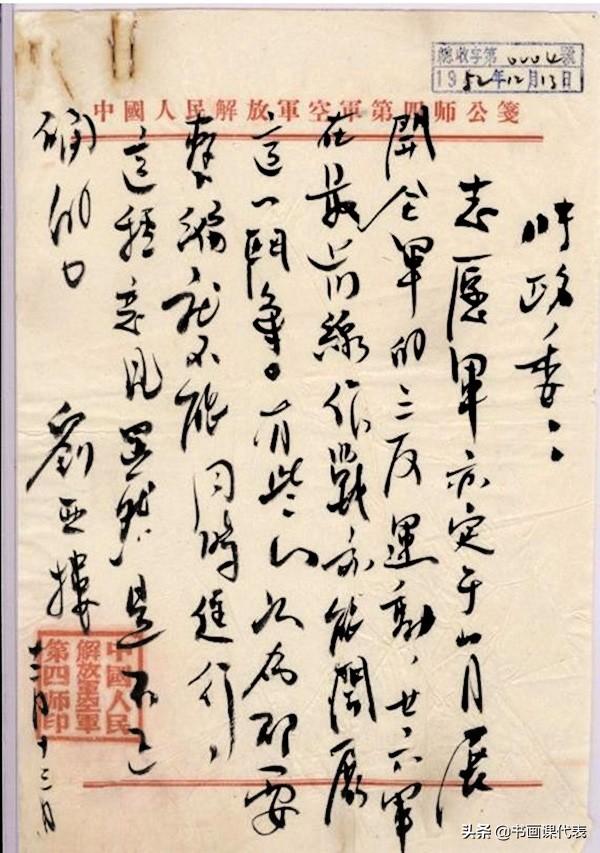 總收字第0004號
1952年12月13日
中國人民解放軍空軍第四师公箋
时政委：
志愿軍亦定于一月展
開全軍的三反運動、廿六軍
在最前線作戰亦能開展
這一鬥争。有些人认为要
整編就不能同時進行、
這種意見显然是不正
确的。
劉亚樓
十二月十三日
中國人民
解放軍空軍
第四师印
头条 @书画课代表